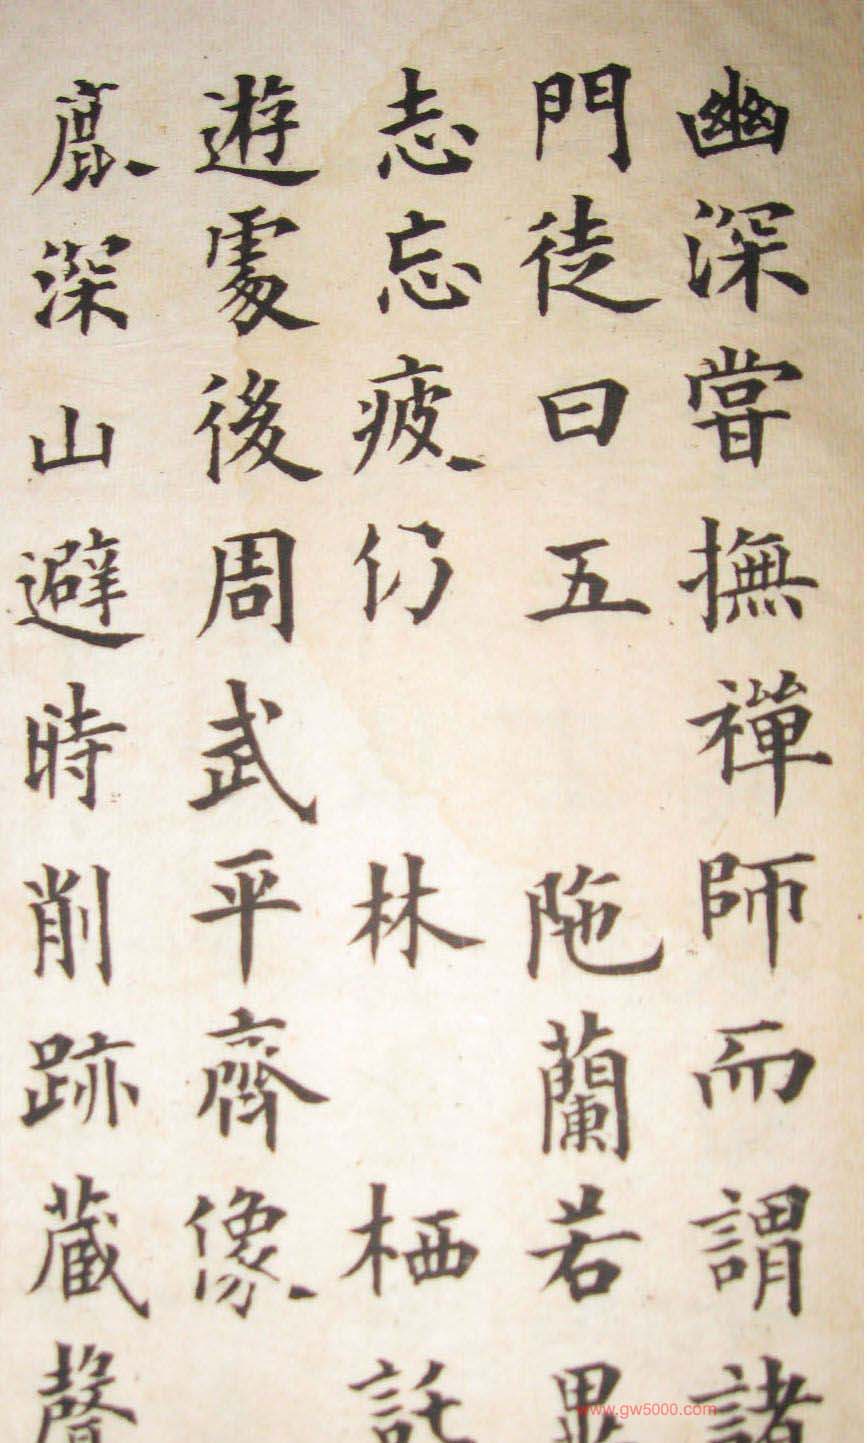 幽深嘗撫禪師而謂諸
門徒曰五陁蘭若畢
志忘疲仍林栖託
遊處後周武平齊像
鹿深山避時削跡藏聲
www.gw5000.com